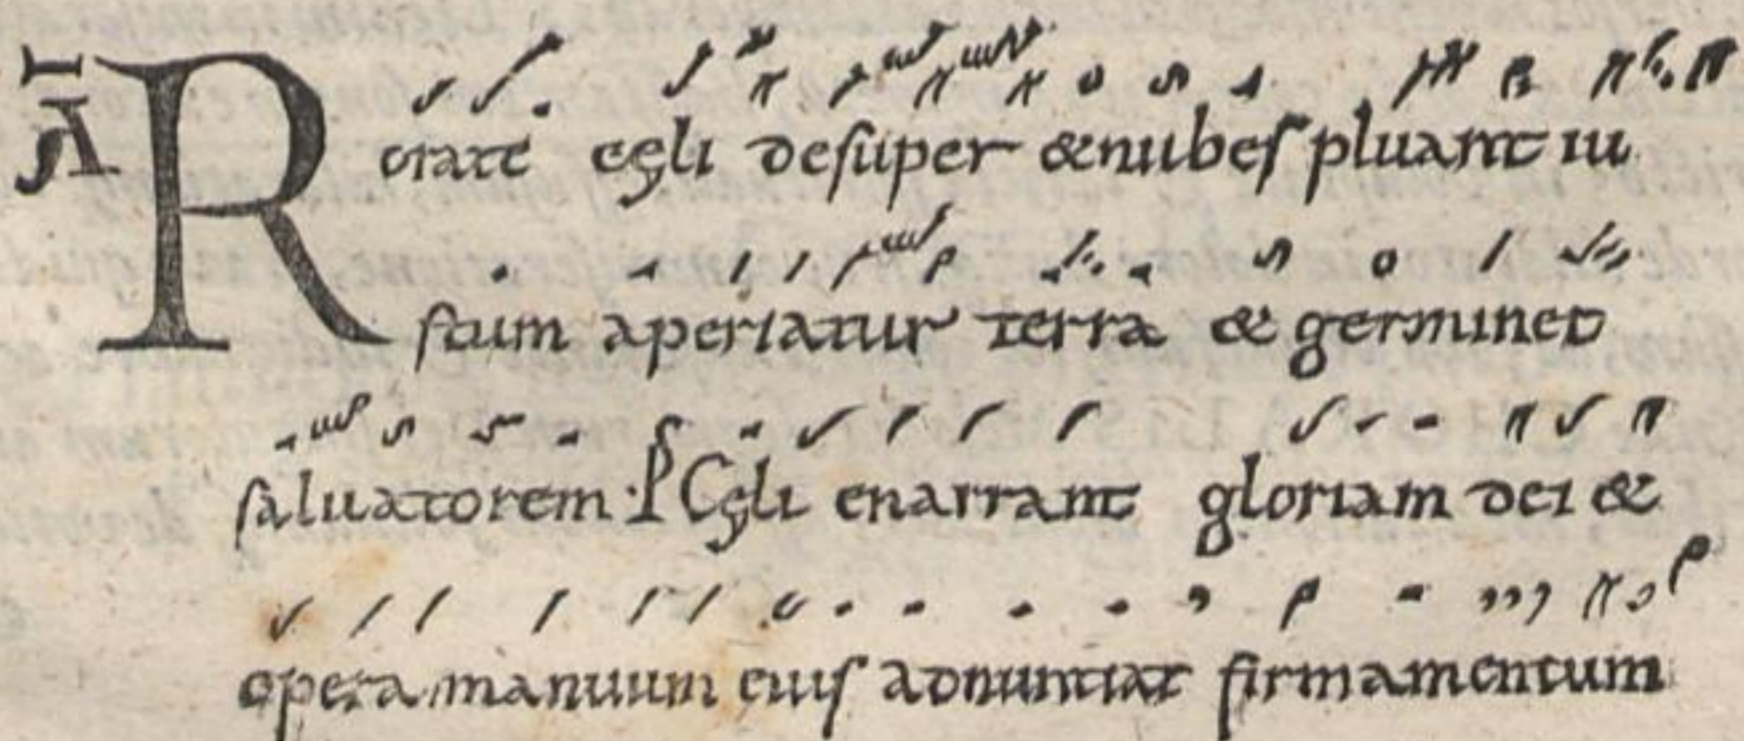 AÏ Rorate cęli desuper & nubes pluant iu
stum aperiatur terra & germinet
saluatorem · P̸ Cęli enarrant gloriam dei &
opera manuum eius adnuntiat firmamentum